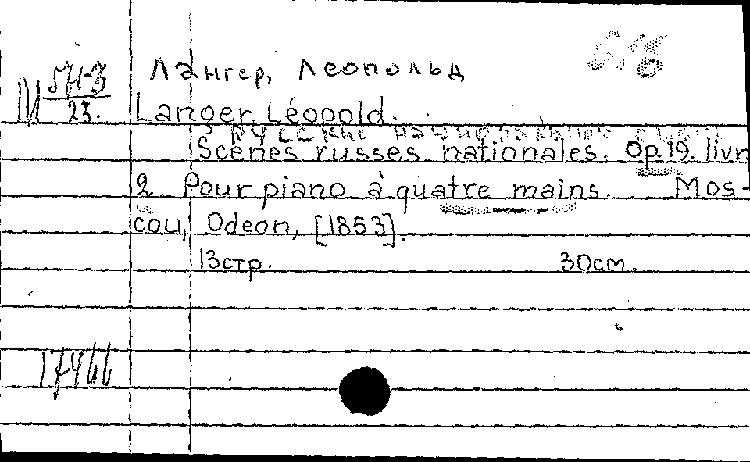 Лангер, Леопольд
М 5Н-3
23.
Langer, Léopold.
Русские национальные
Scènes russes nationales. Op. 19. livr
2 Pour piano à quatre mains. Mos-
cou, Odeon, [1853].
13стр. 30см.
17466